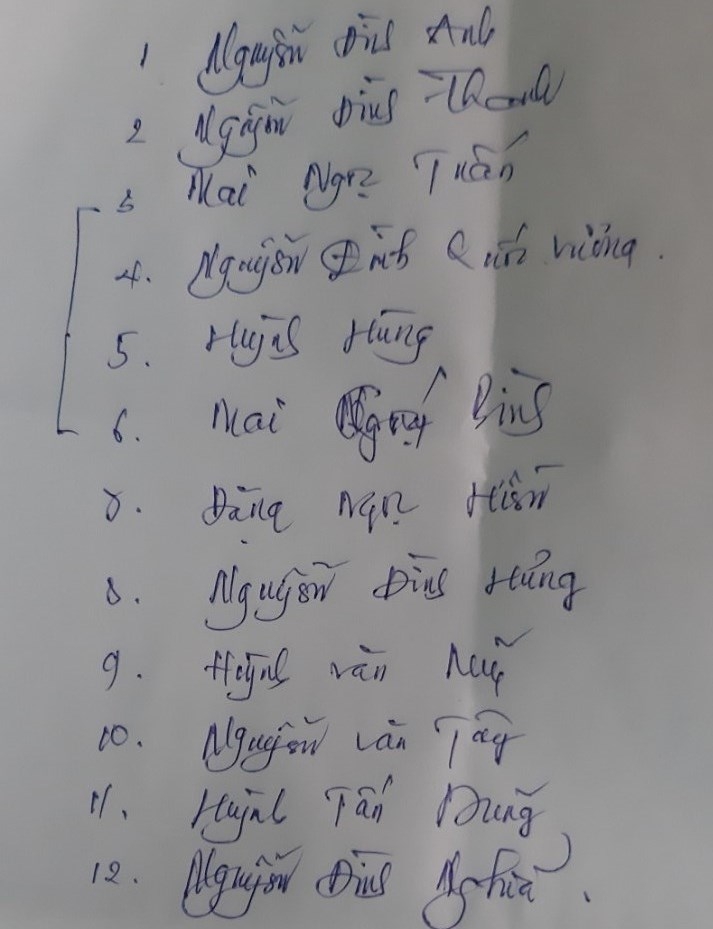 1 Nguyễn Đình Anh
2 Nguyễn Đình Thanh
3 Mai Ngọc Tuấn
4. Nguyễn Đình Quốc Vương.
5. Huỳnh Hùng
6. Mai Đình
7. Đặng Ngọc Hiền
8. Nguyễn Đình Hưng
9. Huỳnh Văn
10. Nguyễn Văn Tây
11. Huỳnh Tấn Dũng
12. Nguyễn Đình Nghĩa.